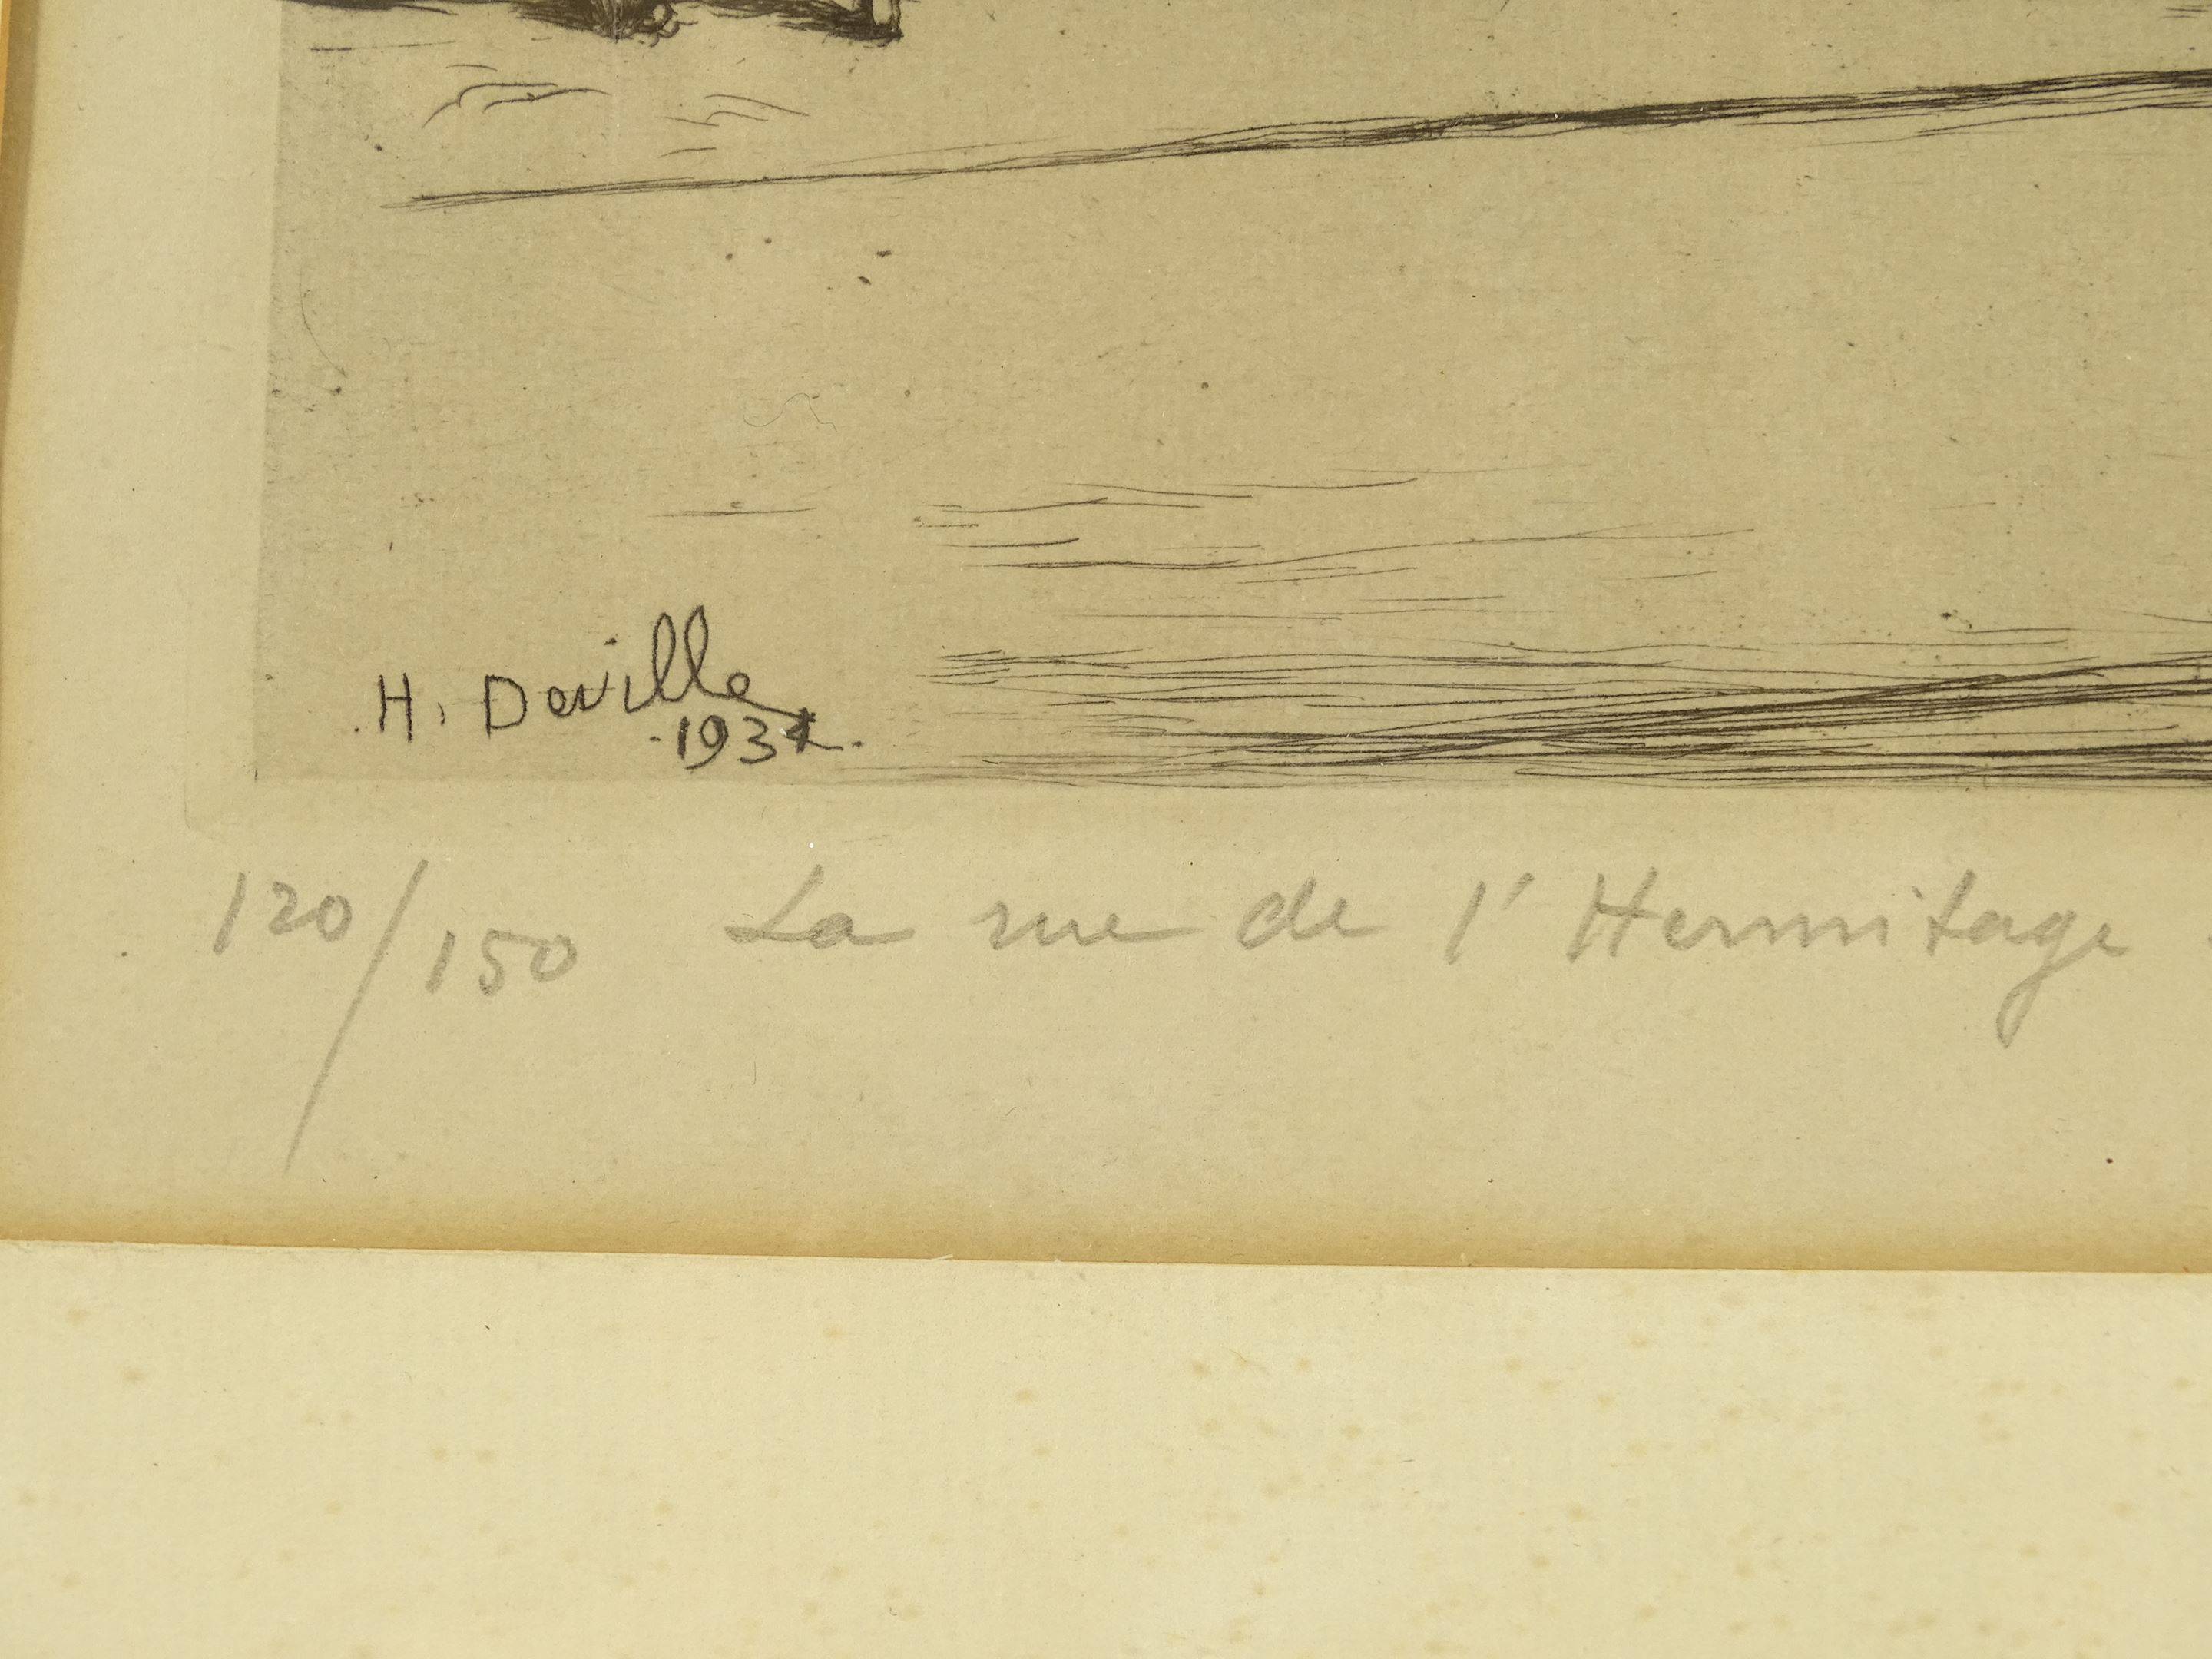 H. Deville
120/150 La rue de l'Hermitage